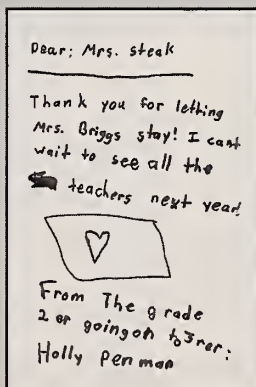 Dear; Mrs. steak
Thank you for letting
Mrs. Briggs stay! I cant
wait to see all the
teachers next year!
From The grade
2 er going on to 3 rer:
Holly Penman